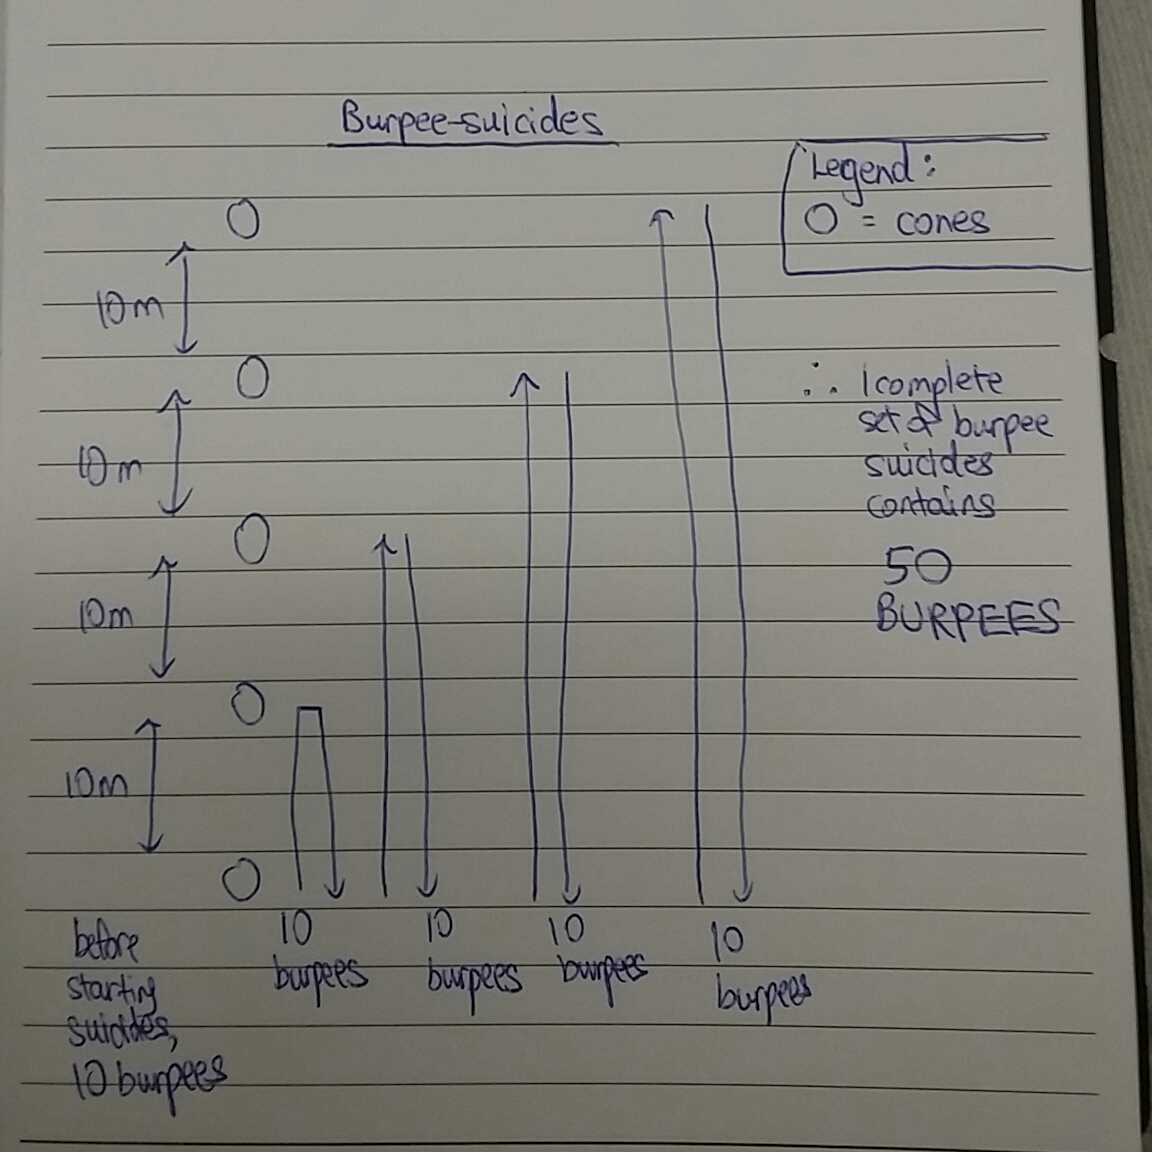 Burpee-suicides
Legend:
O = cones
10m
10m
10m
10m
∴ 1 complete
set of burpee
suicides
contains
50
BURPEES
before
starting
suicides,
10 burpees
10
burpees
10
burpees
10
burpees
10
burpees